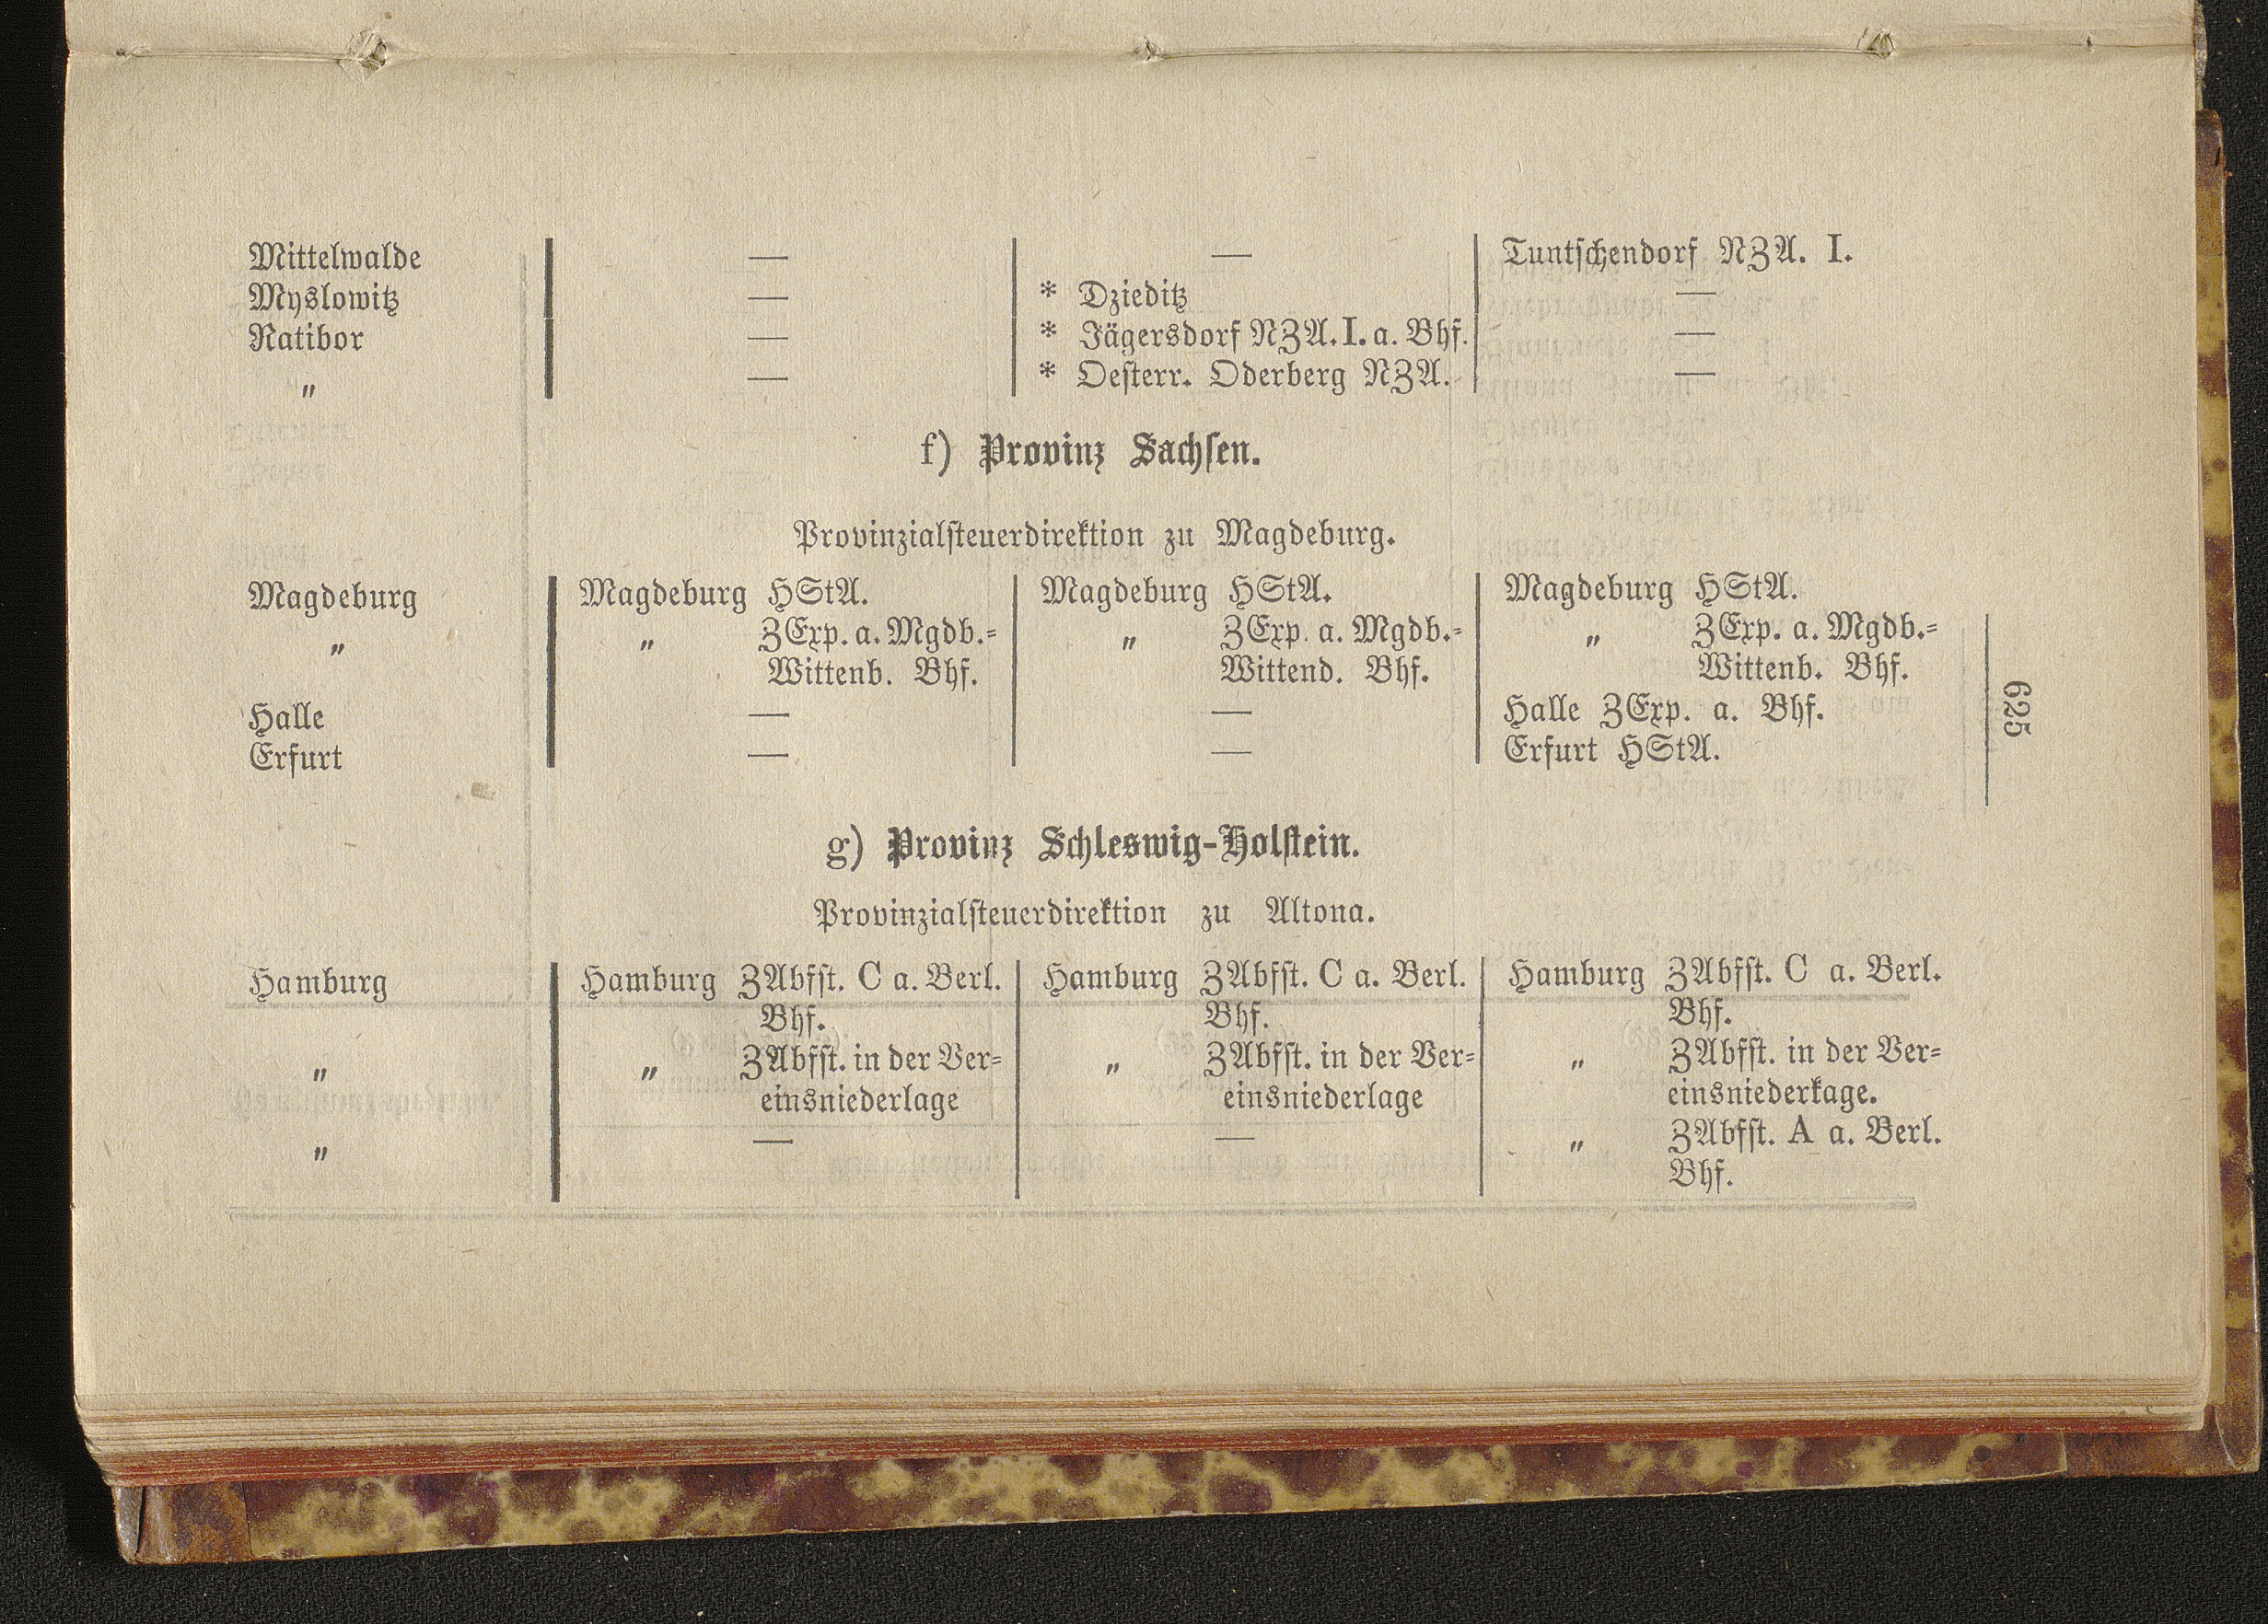 Mittelwalde — — Tuntschendorf NZA. I.
Myslowitz — * Dzieditz —
Ratibor — * Jägersdorf NZA. I. a. Bhf. —
„ — * Oesterr. Oderberg NZA. —
f) Provinz Sachsen.
Provinzialsteuerdirektion zu Magdeburg.
Magdeburg Magdeburg HStA. Magdeburg HStA. Magdeburg HStA.
„ „ ZExp. a. Mgdb.= „ ZExp. a. Mgdb.= „ ZExp. a. Mgdb.=
Wittenb. Bhf. Wittend. Bhf. Wittenb. Bhf.
Halle — — Halle ZExp. a. Bhf.
Erfurt — — Erfurt HStA.
g) Provinz Schleswig-Holstein.
Provinzialsteuerdirektion zu Altona.
Hamburg Hamburg ZAbfſt. C a. Berl. Hamburg ZAbfſt. C a. Berl. Hamburg ZAbfſt. C a. Berl.
Bhf. Bhf. Bhf.
„ „ ZAbfſt. in der Ver= „ ZAbfſt. in der Ver= „ ZAbfſt. in der Ver=
einsniederlage einsniederlage einsniederkage.
„ — — „ ZAbfſt. A a. Berl.
Bhf.
625